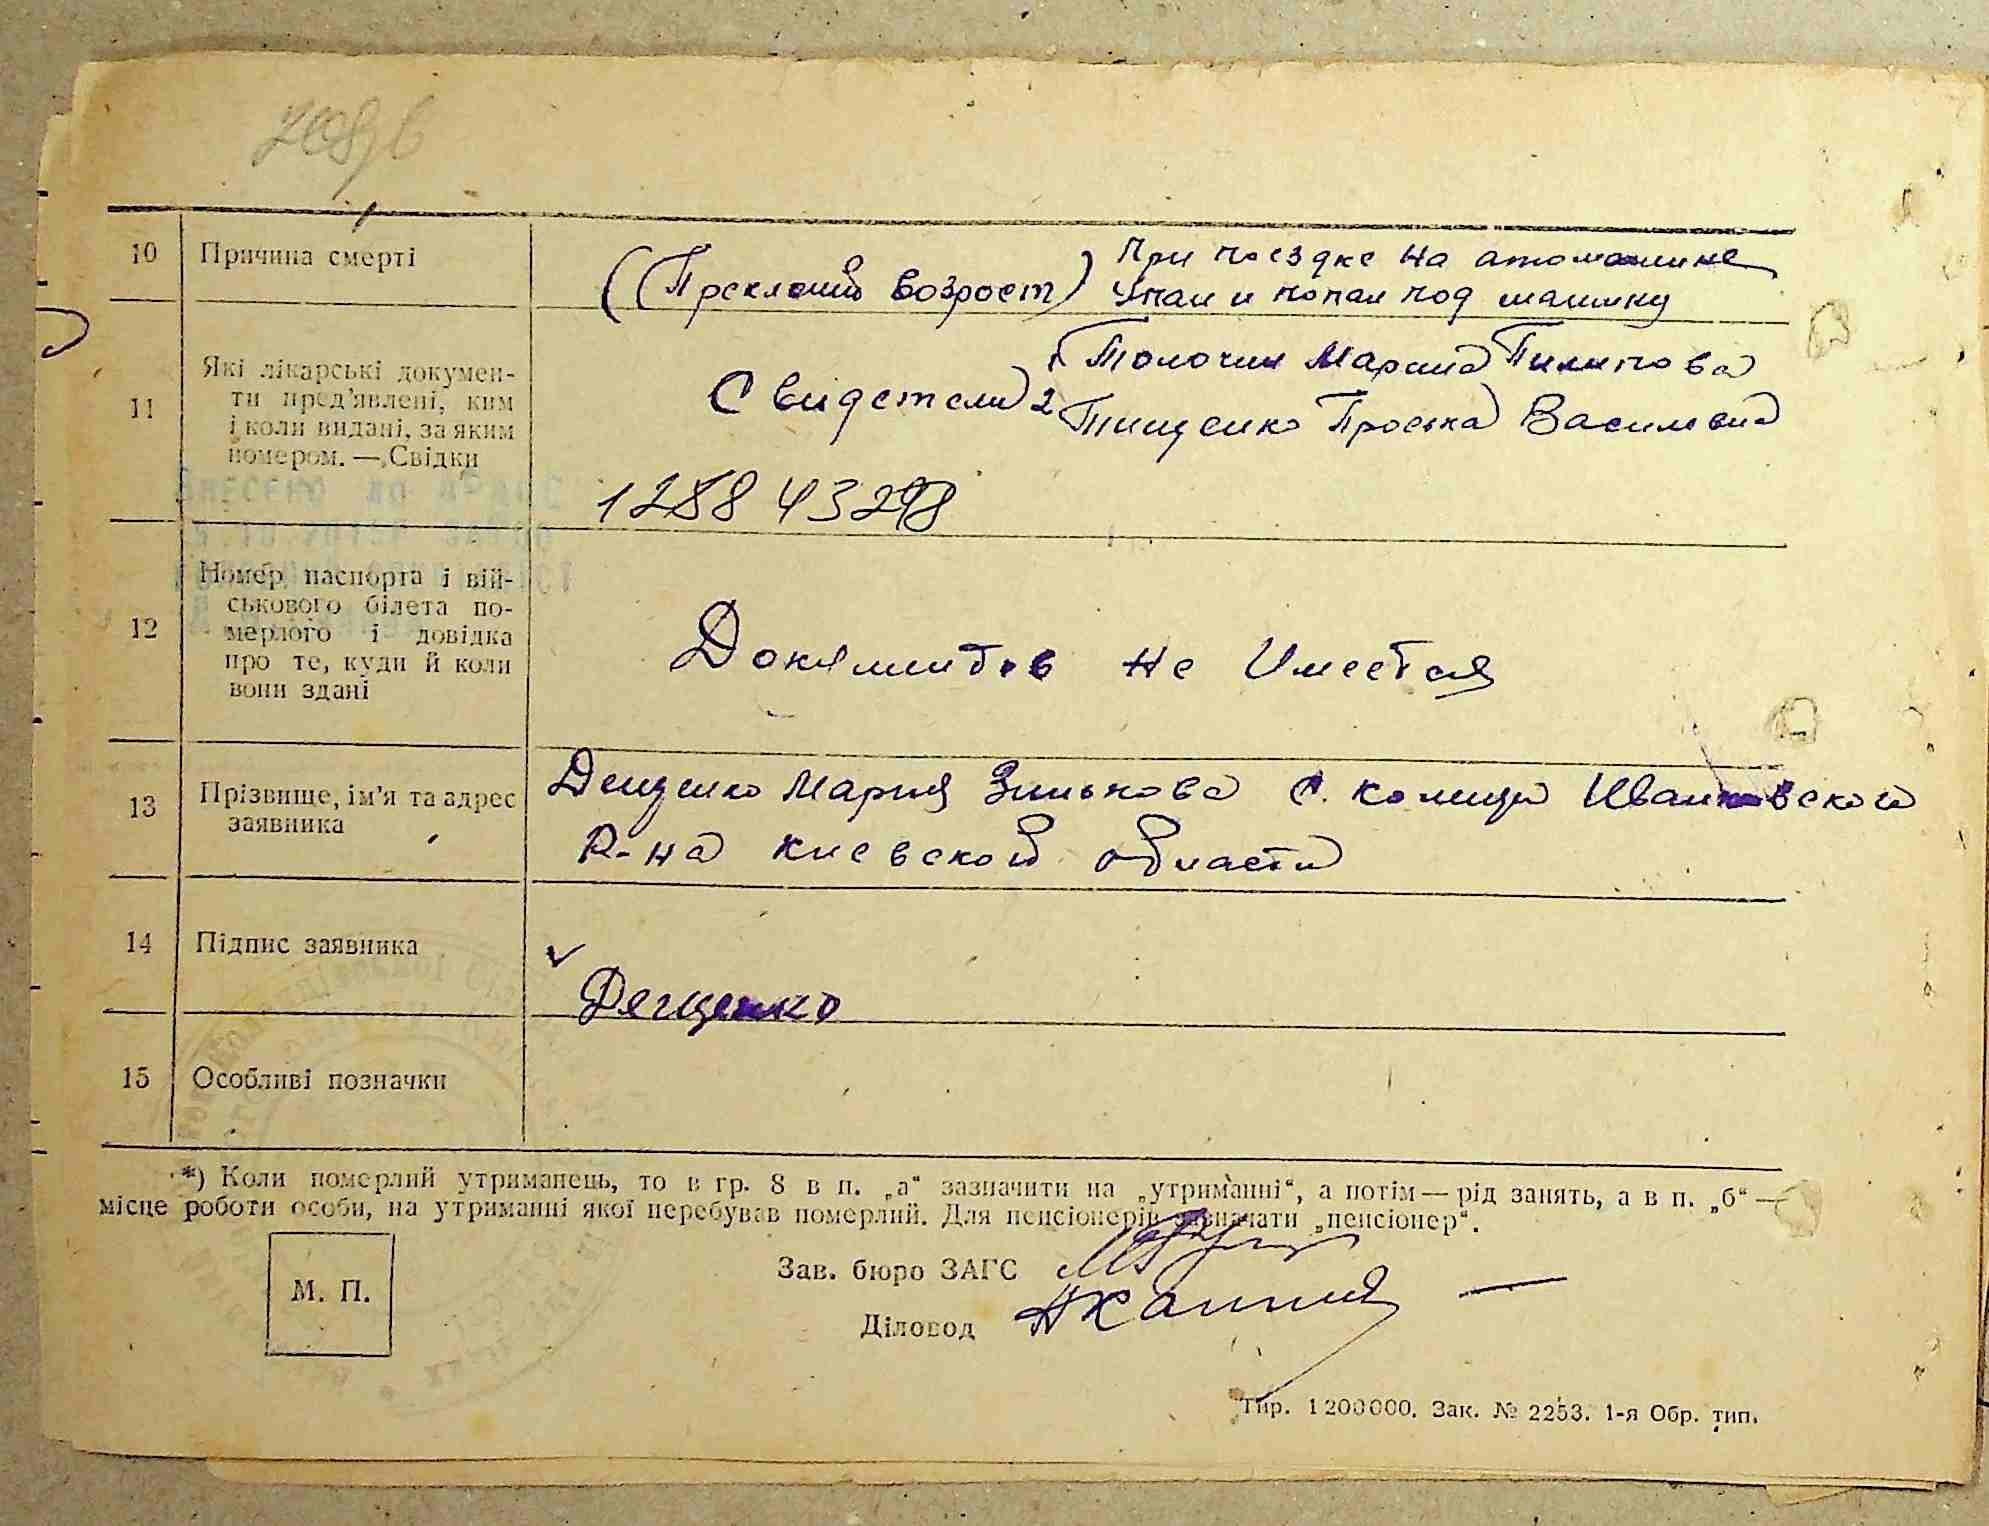 10 Причина смерті
(Преклоний возрост) При поездке на атомашине
Упал и попал под машину
11 Які лікарські докумен-
ти пред'явлені, ким
і коли видані, за яким
номером. — Свідки
Свидетели 1 Толочин Мариа Пилипова
2 Тищенко Проська Василевна
128843298
12 Номер паспорта і вій-
ськового білета по-
мерлого і довідка
про те, куди й коли
вони здані
Докяминтов не Имеетая
13 Прізвище, ім'я та адрес
заявника
Дещенко Мария Зинькова С. Колинци Иванковского
Р-на Киевской области
14 Підпис заявника
Дещенко
15 Особливі позначки
*) Коли померлий утриманець, то в гр. 8 в п. „а“ зазначити на „утриманні“, а потім — рід занять, а в п. „б“ —
місце роботи особи, на утриманні якої перебував померлий. Для пенсіонерів зазначати „пенсіонер“.
М. П.
Зав. бюро ЗАГС
Діловод
Тир. 1200000. Зак. № 2253. 1-я Обр. тип.